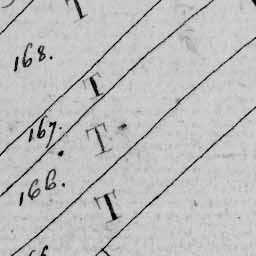 T
168.
T
167.
T
166.
T